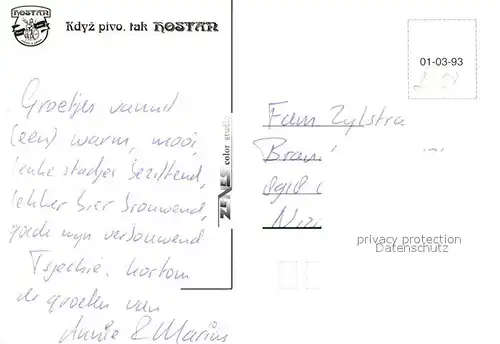 HOSTAN
Když pivo, tak HOSTAN
01-03-93
Groetjes vanuit
(een) warm, mooi,
leuke stadjes bezittend,
lekker bier brouwend,
goede wijn verbouwend
Tsjechië, kortom
de groeten van
Annie & Marius
ZEVES color studio
Fam Zylstra
privacy protection
Datenschutz